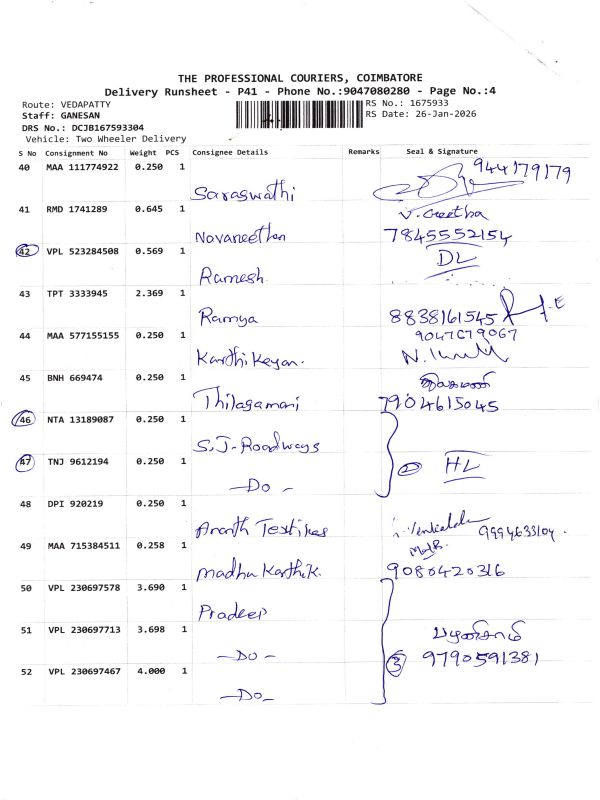 THE PROFESSIONAL COURIERS, COIMBATORE
Delivery Runsheet - P41 - Phone No.:9047080280 - Page No.:4
Route: VEDAPATTY
Staff: GANESAN
DRS No.: DCJB167593304
Vehicle: Two Wheeler Delivery
RS No.: 1675933
RS Date: 26-Jan-2026
S No Consignment No Weight PCS Consignee Details Remarks Seal & Signature
40 MAA 111774922 0.250 1
Saraswathi 944179179
41 RMD 1741289 0.645 1 V. Geetha
Navaneethan 7845552154
42 VPL 523284508 0.569 1 DL
Ramesh
43 TPT 3333945 2.369 1
Ramya 8838161545
44 MAA 577155155 0.250 1 9047679067
Karthikeyan.
45 BNH 669474 0.250 1
Thilagamani 7904615045
46 NTA 13189087 0.250 1
S.J-Roadways
47 TNJ 9612194 0.250 1 2 HL
-Do-
48 DPI 920219 0.250 1
Ananth Textiles 9994633104.
49 MAA 715384511 0.258 1
Madhu Karthik. 9080420316
50 VPL 230697578 3.690 1
Pradeep
51 VPL 230697713 3.698 1 பழனிசாமி
-Do- 3 9790591381
52 VPL 230697467 4.000 1
-Do-